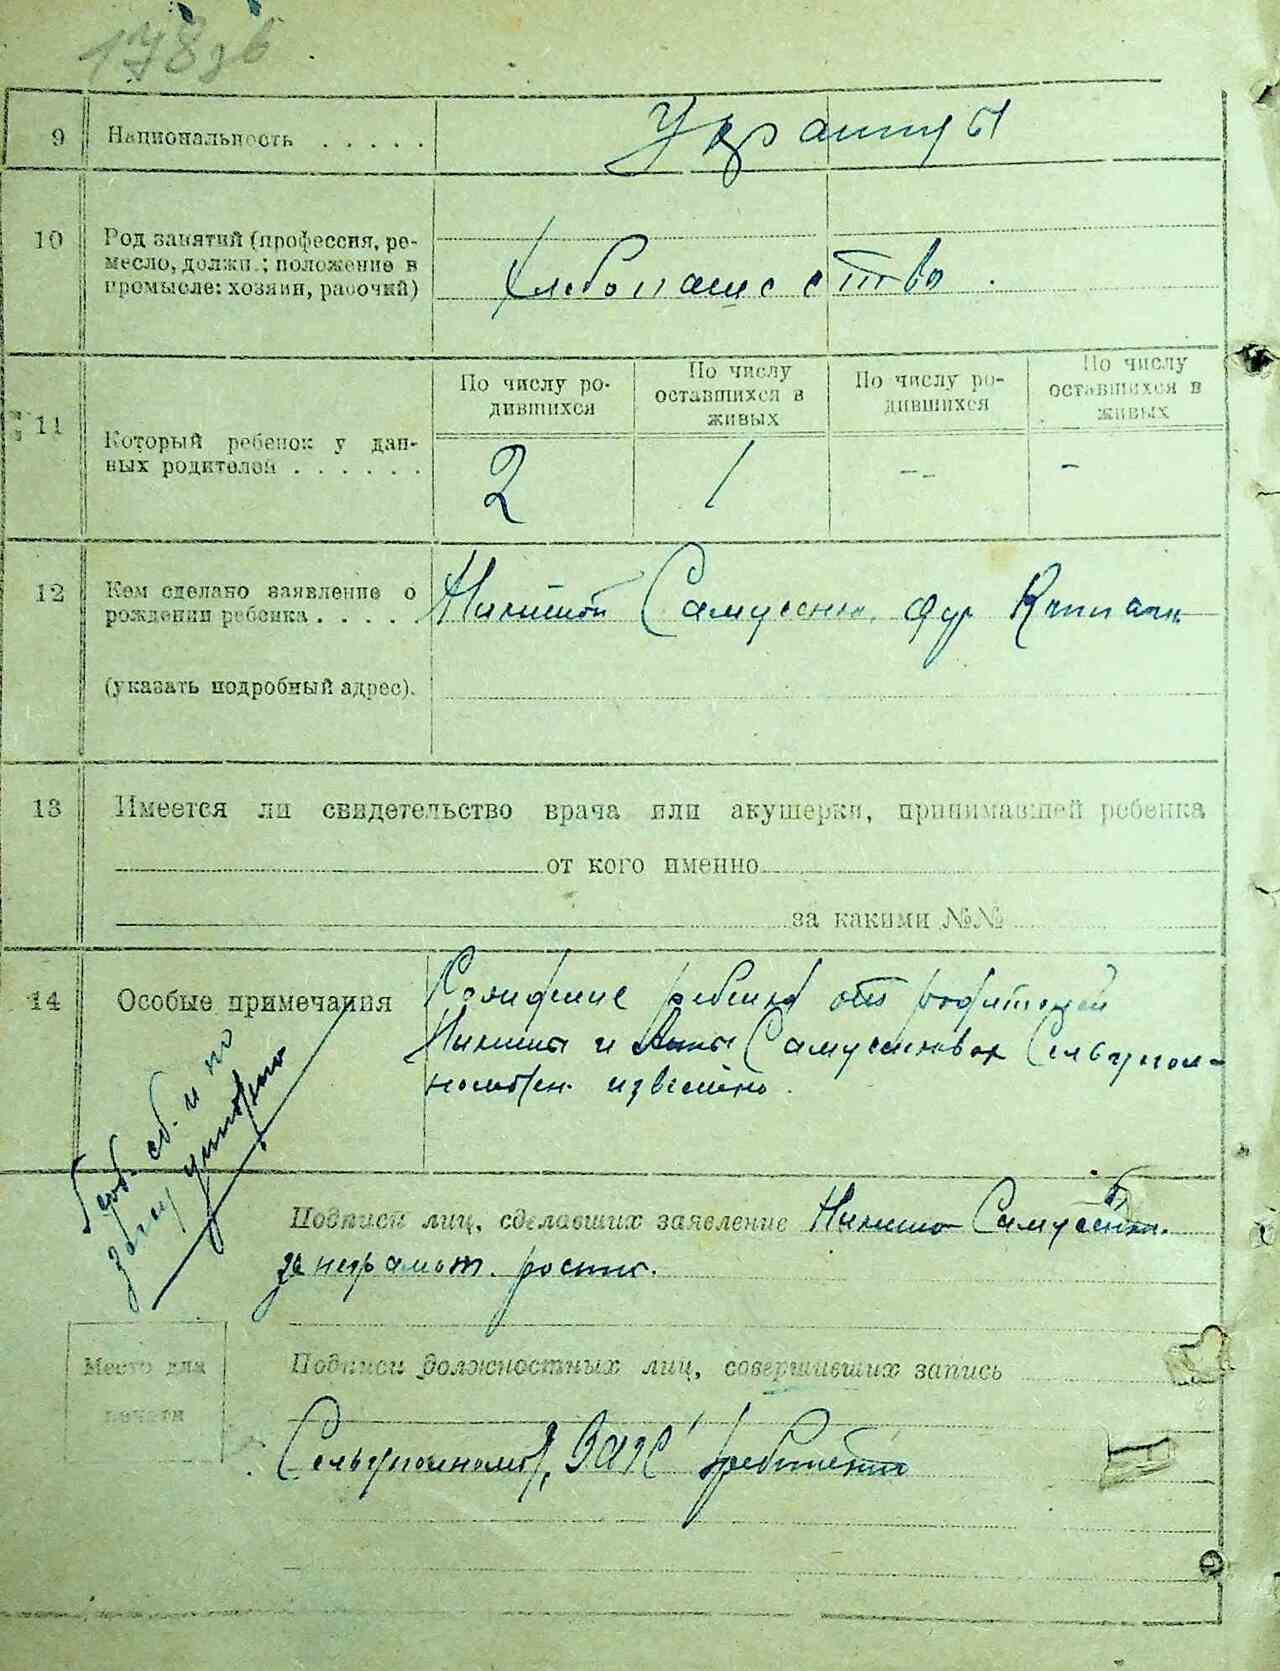 178 об
9 Национальность . . . . . Украинцы
10 Род занятий (профессия, ре-
месло, должн.; положение в
промысле: хозяин, рабочий)
Хлебопашество.
11 Который ребенок у дан-
ных родителей . . . . . .
По числу ро-
дившихся
По числу
оставшихся в
живых
По числу ро-
дившихся
По числу
оставшихся в
живых
2 1 -- -
12 Кем сделано заявление о
рождении ребенка . . . .
(указать подробный адрес).
Никитой Самусенко,
13 Имеется ли свидетельство врача или акушерки, принимавшей ребенка
от кого именно
за какими №№
14 Особые примечания
Рождение ребенка от родителей
Никиты и Самусенковых Сельупол-
номочен. известно.
Подписи лиц, сделавших заявление Никита Самусенко.
за неграмот. роспис.
Место для
печати
Подписи должностных лиц, совершивших запись
Сельуполномоч. ЗАГС